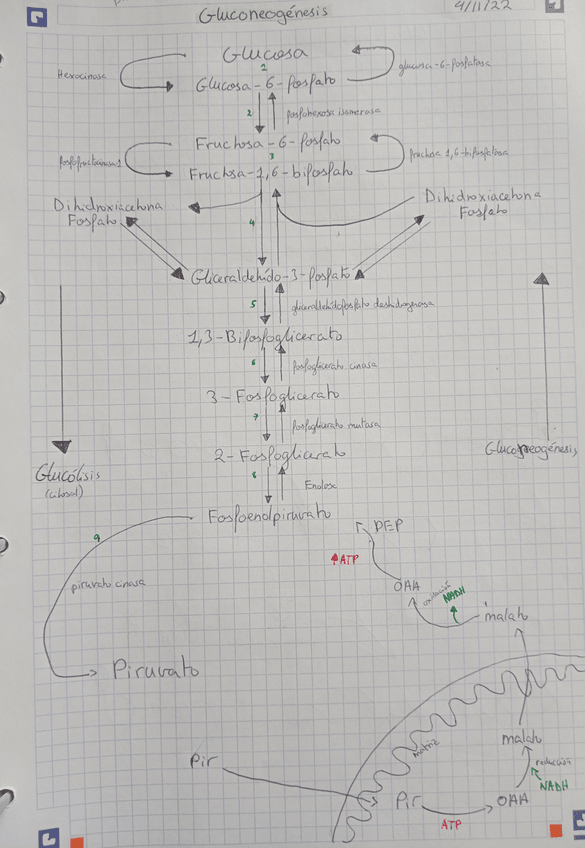 Gluconeogénesis
4/11/22
Glucosa
Hexocinasa
1
glucosa-6-fosfatasa
Glucosa-6-fosfato
2
fosfohexosa isomerasa
Fruchosa-6-fosfato
3
fosfofructocinasa 1
fruchosa 1,6-bifosfatasa
Fruchsa-1,6-bifosfato
Dihidroxiacetona
Fosfato
Dihidroxiacetona
Fosfato
4
Gliceraldehido-3-fosfato
5
gliceraldehidofosfato deshidrogenasa
1,3-Bifosfoglicerato
6
fosfoglicerato cinasa
3-Fosfoglicerato
7
fosfoglicerato mutasa
2-Fosfoglicerato
Glucólisis
(citosol)
Gluconeogénesis
8
Enolasa
Fosfoenolpiruvato
9
PEP
ATP
piruvato cinasa
OAA
oxidación
NADH
malato
Piruvato
matriz
malato
Pir
reducción
NADH
Pir
OAA
ATP